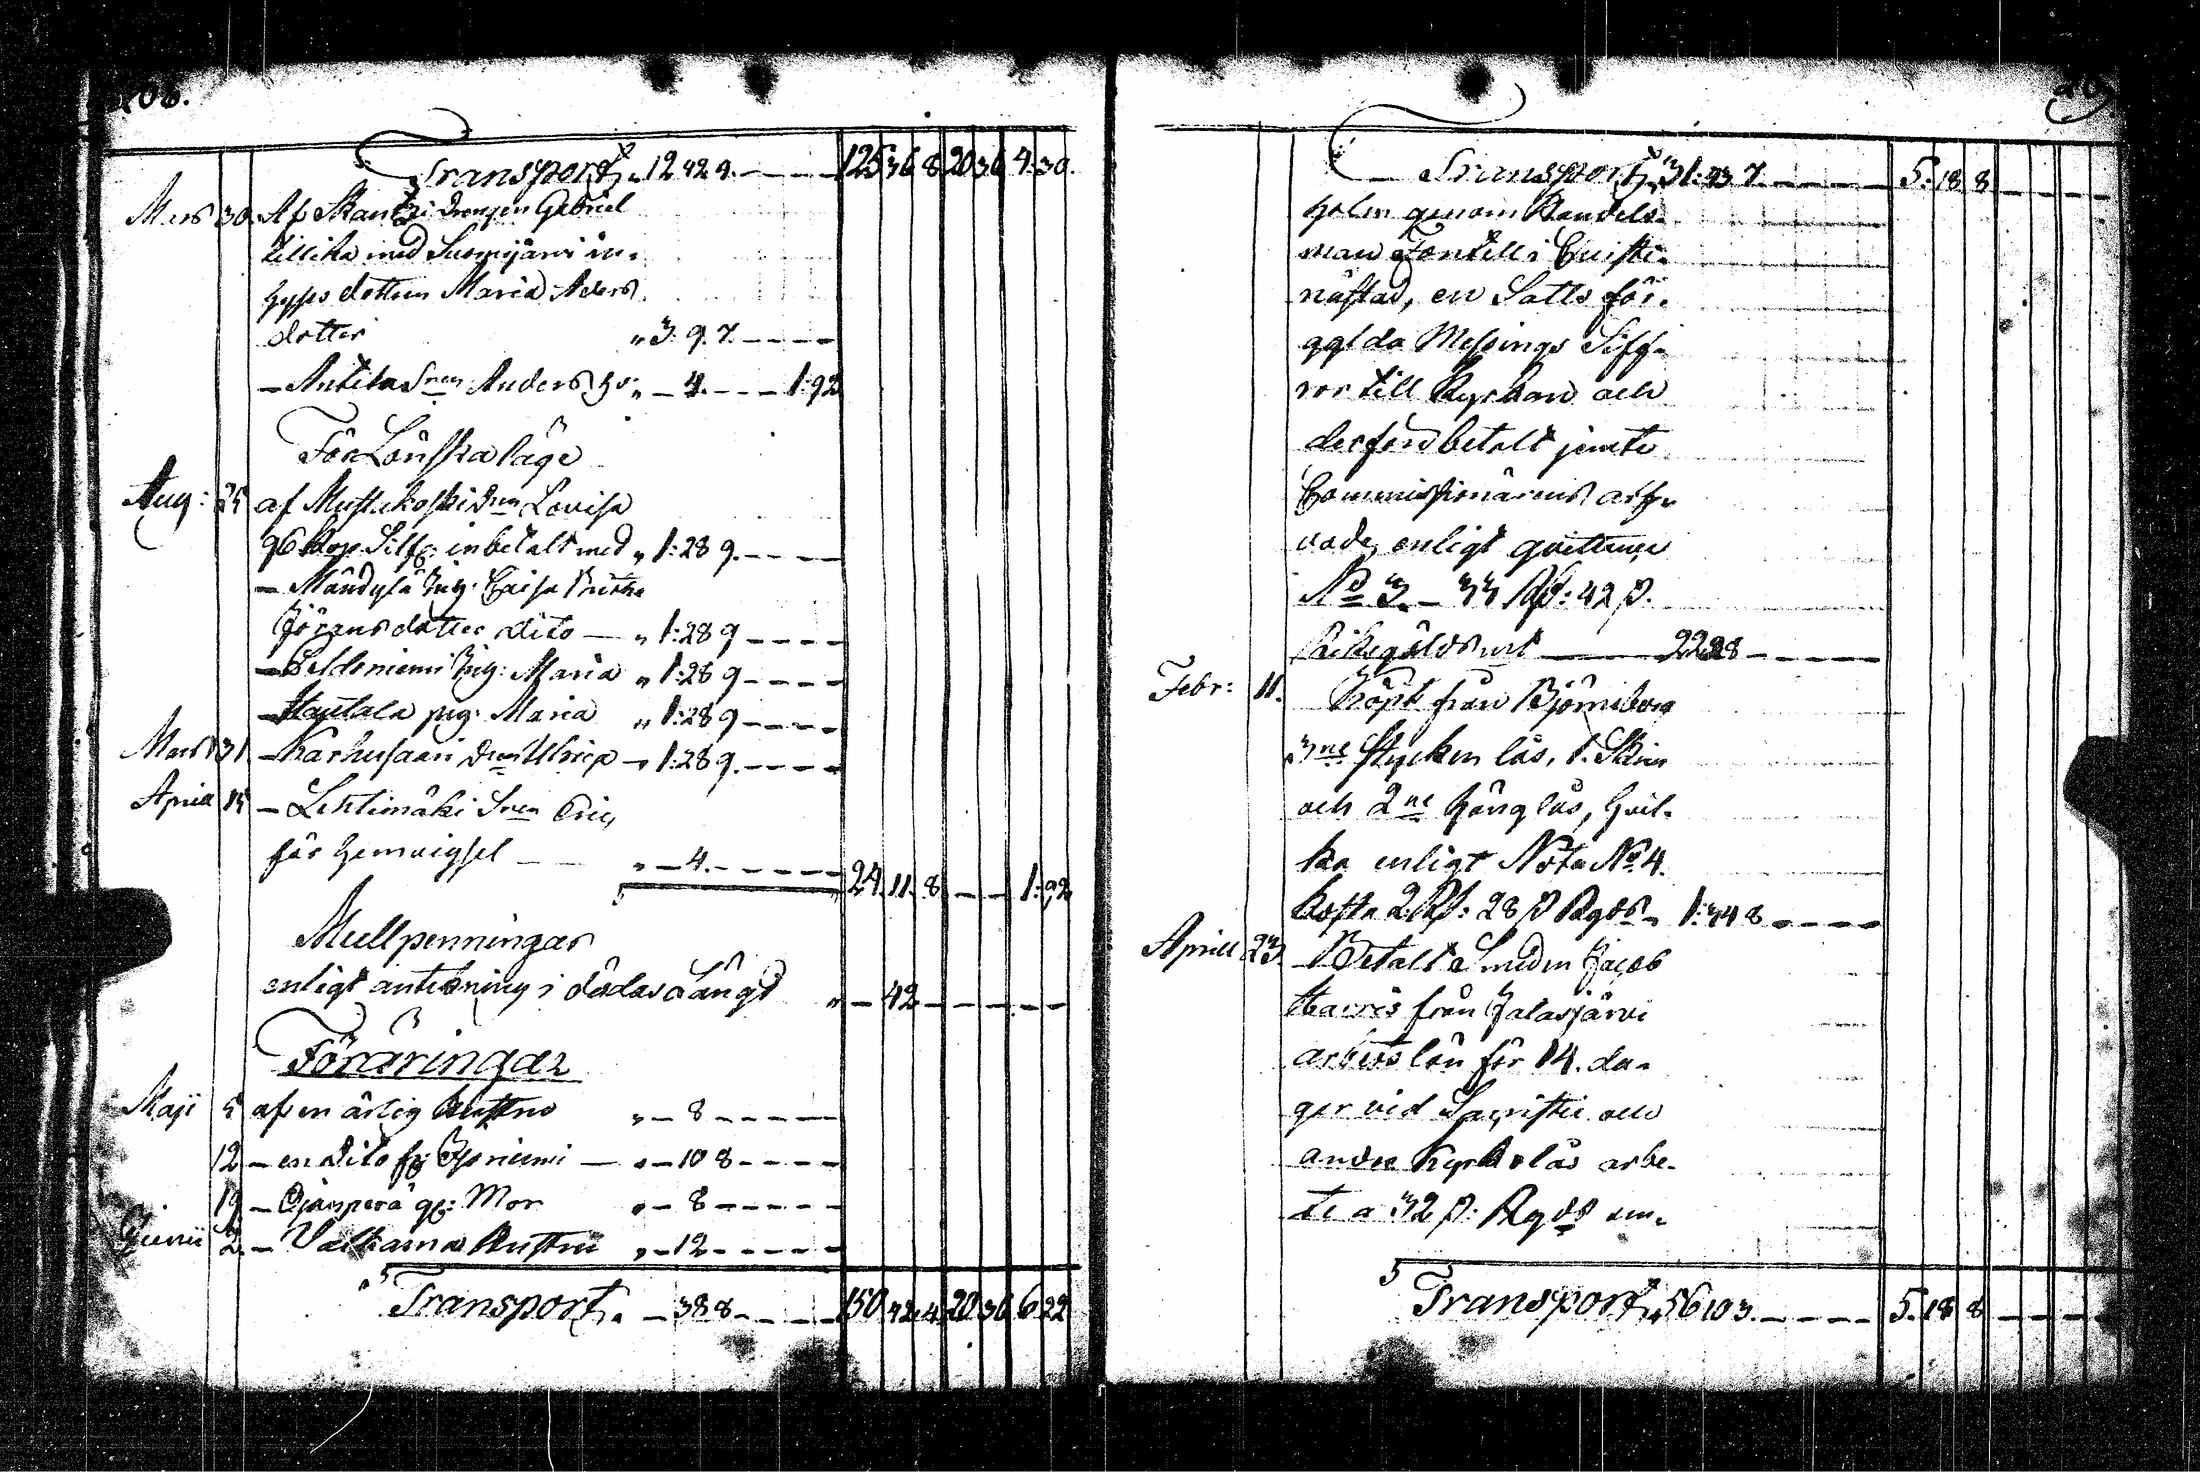 208.
Transport 12 42 9. 125 36 8 20 36 4. 30.
Mars 30 Af Skantzi Drengen Gabriel
tillika med Suomijärvi in-
hyses dottern Maria Anders
dotter " 3. 9. 7.
— Antila Sven Anders hr " — 4. 1: 92
För Lönskaläge
Aug: af Mustakoski Dren Lovisa
96 Kop. Silf: inbetalt med " 1: 28 9.
— Mändylä Pig: Caisa
Jörans dotter dito — " 1: 28 9
— Pig: Maria " 1: 28 9
— Hautala pig: Maria " 1: 28 9
Mars 31 — Karhusaari Ulrica — 1: 28 9.
Aprill 15 — Lehtimäki Sven Eric,
för hemvigsel — " — 4.
24 11 8 1: 92
Mullpenningar
enligt antekning i dödas Längd " — 42
Föräringar
Maji 5 af en ärlig Hustru " — 8
12 — en dito fr: — " — 10 8
19 — Ojanperä gl: Mor " — 8
Junii 2. — Valkama Hustru " — 12
Transport. — 38 8 150 42 4 20 36 6 22
Transport 31: 43 7. 5. 18 8
holm genom Handels-
man i Christi-
nästad, en Satts för-
gylda Messings Siff-
ror till Kyrkan och
derföre betalt jemte
Commissionärens arf-
vode, enligt quittence
No 3. — 33 Rd: 42 ß.
Riksgälds mt — 22 28
Febr: 11. Köpt från Björneborg
3ne stycken lås, 1. Skrin
och 2ne hänglås, hvil-
ka enligt Nota No 4.
kosta 2 Rd: 28 ß Rgds 1: 34 8
Aprill 23 Betalt Smeden Jacob
från Jalasjärvi
arbetslön för 14. da-
gar vid Sacristie och
andre Kyrko lås arbe-
te a 32 ß: Rgds
Transport 56 10 3. 5. 18 8